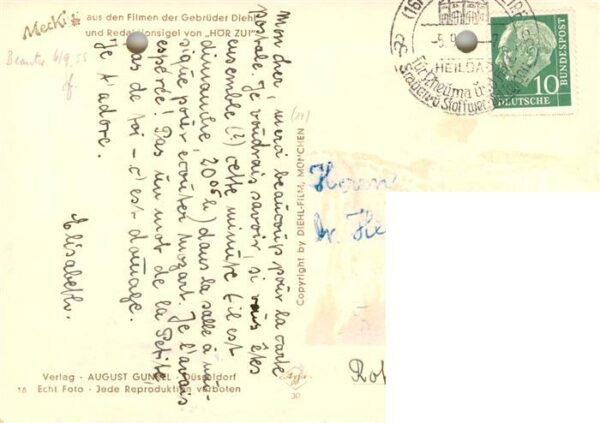 Mecki
aus den Filmen der Gebrüder Diehl
und Redaktionsigel von „HÖR ZU!"
6/9.55
Mon cher, merci beaucoup pour la carte
postale. Je voudrais savoir, si vous êtes
ensemble (!) cette minute (il est
dimanche, 20 05 h) dans la salle à mu-
sique pour ecouter Mozart. Je l'avais
espéré! Pas un mot de la Petite
pas de toi – c'est domage.
Je t'adore.
Elisabeth.
Verlag - AUGUST GUNKEL - Düsseldorf
18 Echt Foto - Jede Reproduktion verboten
Copyright by DIEHL-FILM, MÜNCHEN
30
(16
-5.9
HEILBA
für Rheuma
10
DEUTSCHE
BUNDESPOST
Herrn
Dr. He
Rot